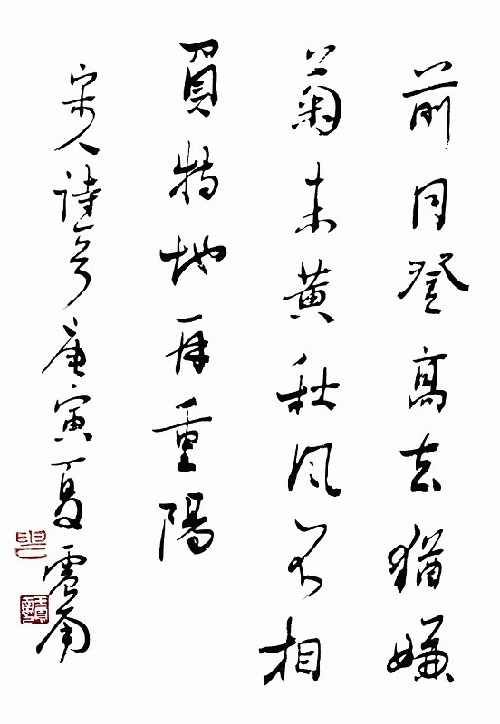 前月登高去猶嫌
菊未黄秋风不相
負特地再重陽
宋人詩庚寅夏